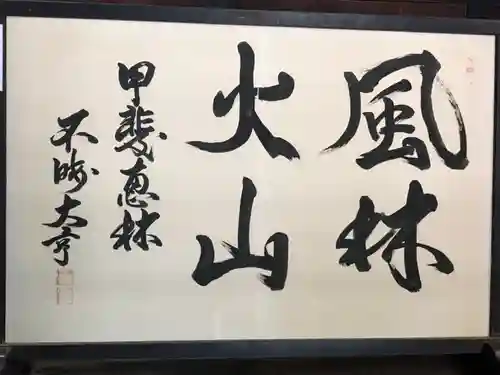 風林
火山
甲斐恵林
不昧大亨